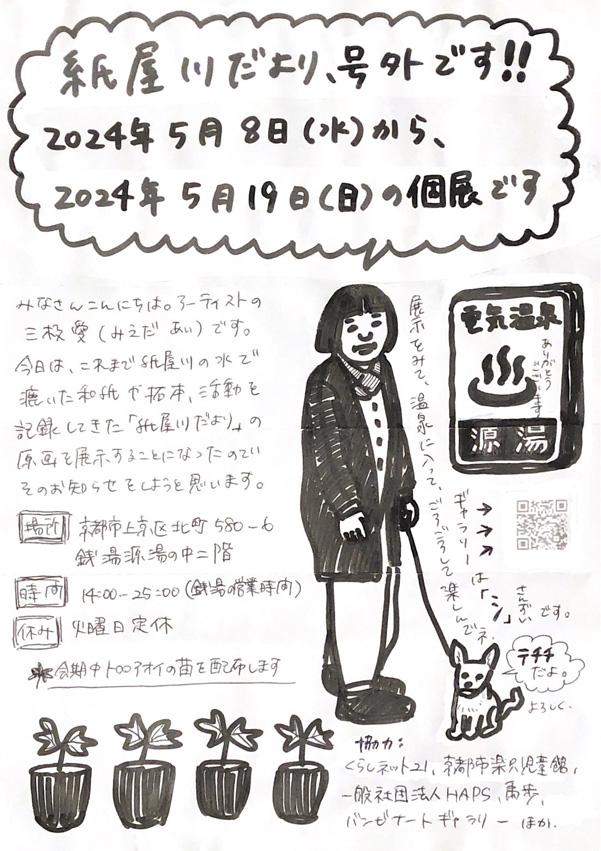 紙屋川だより、号外です!!
2024年5月8日(水)から、
2024年5月19日(日)の個展です
みなさんこんにちは。アーティストの
三枝愛(みえだ あい)です。
今日は、これまで紙屋川の水で
漉いた和紙や拓本、活動を
記録してきた「紙屋川だより」の
原画を展示することになったので
そのお知らせをしようと思います。
場所 京都市上京区北町580-6
銭湯源湯の中二階
時間 14:00-25:00(銭湯の営業時間)
休み 火曜日定休
会期中トロロアオイの苗を配布します
展示をみて、温泉に入って、ごろごろして楽しんでネ
電気温泉
ありがとう
ございます
源湯
→→→
ギャラリーは「シ」です。
さんずい
テチチ
だよ。
よろしく.
協力:
くらしネット21、京都市楽只児童館,
一般社団法人HAPS、
バンビナートギャラリー ほか.